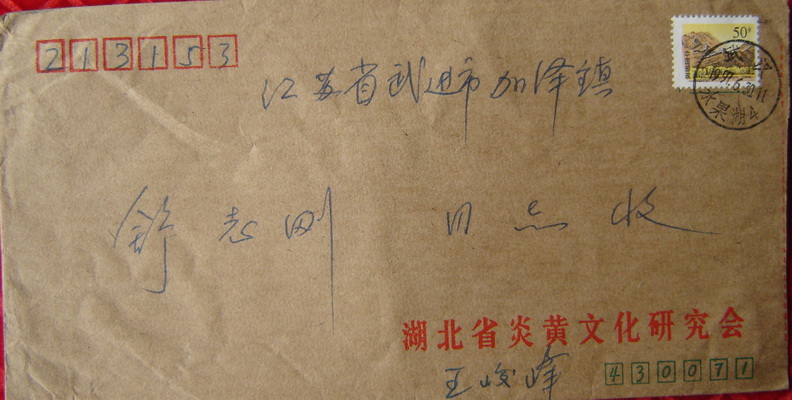 213153
50
江苏省武进市加泽镇
1997.6.30.11
水果湖4
舒志刚 同志收
湖北省炎黄文化研究会
王峻峰
430071